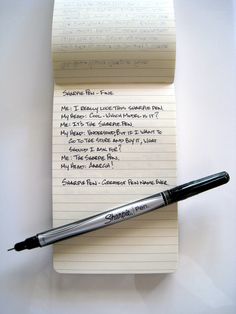 SHARPIE PEN - FINE
ME: I REALLY LOVE THIS SHARPIE PEN.
MY HEAD: COOL. WHICH MODEL IS IT?
ME: IT'S THE SHARPIE PEN.
MY HEAD: UNDERSTOOD, BUT IF I WANT TO
GO TO THE STORE AND BUY IT, WHAT
SHOULD I ASK FOR?
ME: THE SHARPIE PEN.
MY HEAD: AAARGH!
SHARPIE PEN - GREATEST PEN NAME EVER.
Sharpie Pen